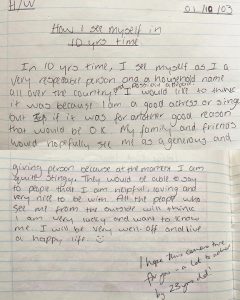 H/W
01/10/03
How I see myself in
10 yrs time
In 10 yrs time, I see myself as I a
very respected person and a household name
all over the country and possibly abroad. I would like to think
it was because I am a good actress or singer
but if it was for another good reason
that would be OK. My family and friends
would hopefully see me as a generous and
giving person because at the moment I am
quite stingy. They would be able to say
to people that I am helpful, loving and
very nice to be with. All the people who
see me from the outside will think
I am very lucky and want to know
me. I will be very well-off and live
a happy life
I hope this comes true
for you - a lot to achieve
by 23 years old!